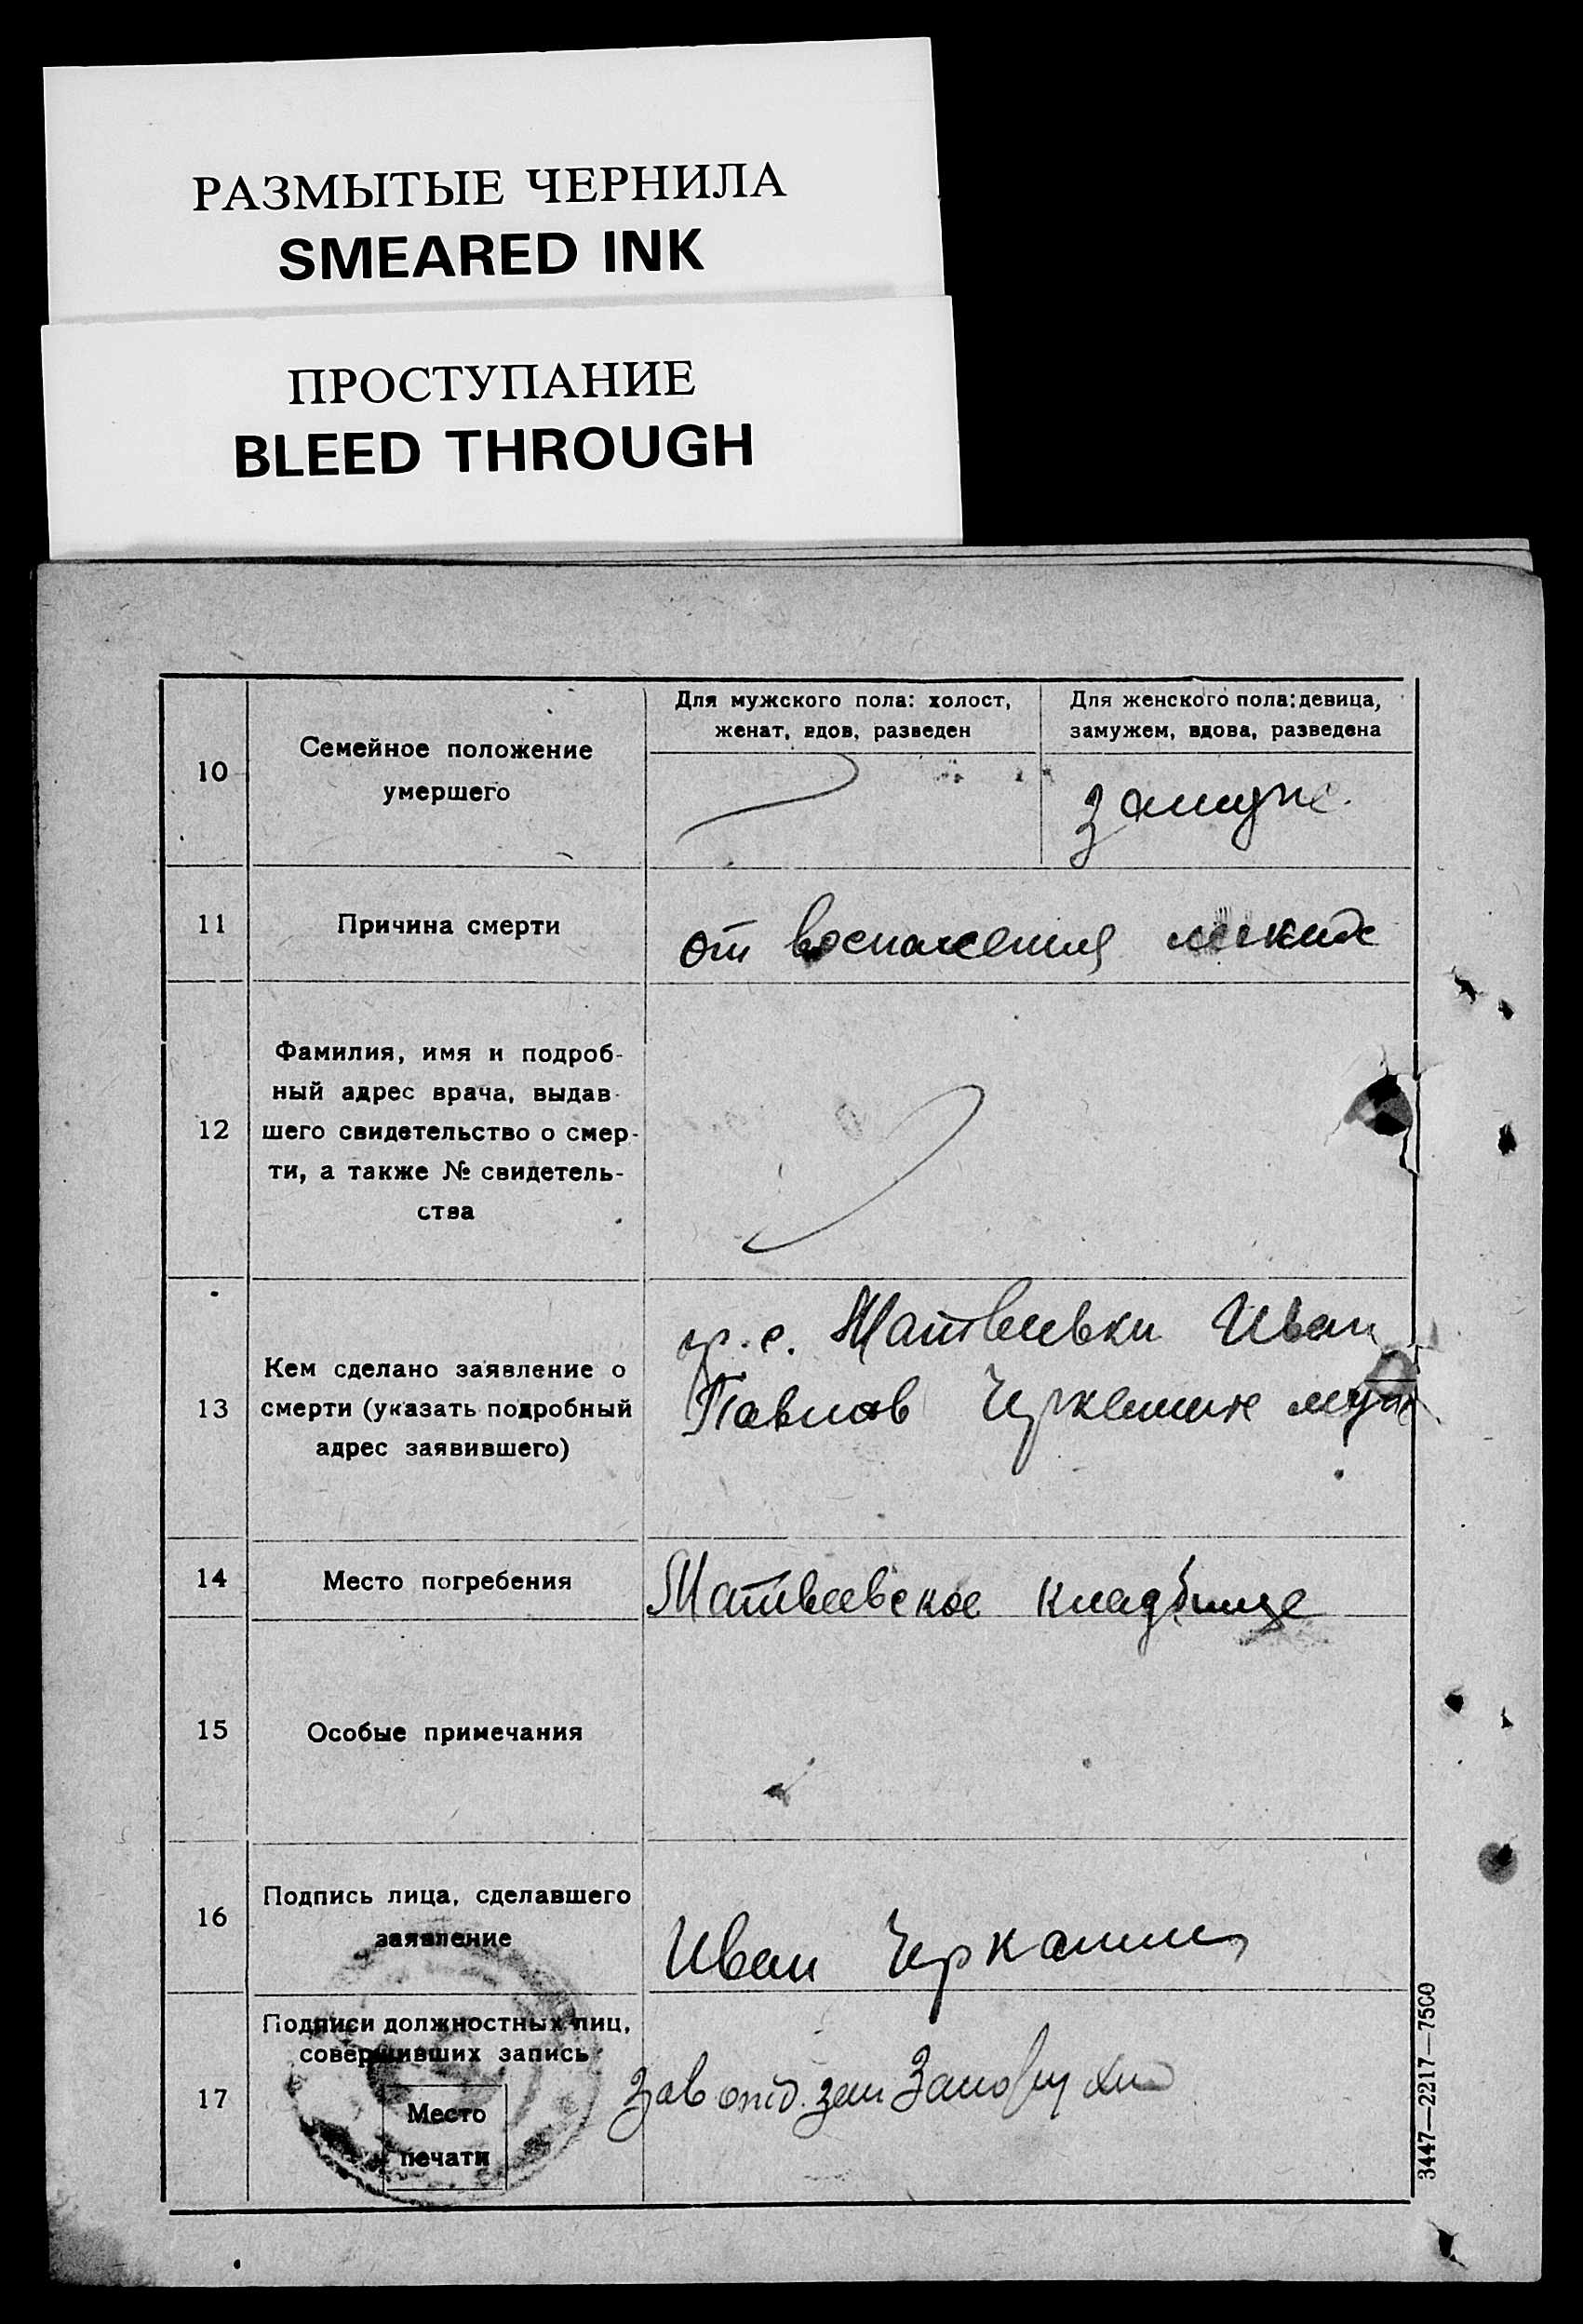 РАЗМЫТЫЕ ЧЕРНИЛА
SMEARED INK
ПРОСТУПАНИЕ
BLEED THROUGH
10
Семейное положение
умершего
Для мужского пола: холост,
женат, вдов, разведен
Для женского пола: девица,
замужем, вдова, разведена
замуж.
11
Причина смерти
от воспаления легких
12
Фамилия, имя и подроб-
ный адрес врача, выдав-
шего свидетельство о смер-
ти, а также № свидетель-
ства
13
Кем сделано заявление о
смерти (указать подробный
адрес заявившего)
гр. с. Матвеевки Иван
Павлов муж
14
Место погребения
Матвеевское кладбище
15
Особые примечания
16
Подпись лица, сделавшего
заявление
Иван Черкашин
17
Подписи должностных лиц,
совершивших запись
Место
печати
Зав отд.
3447—2217—7500